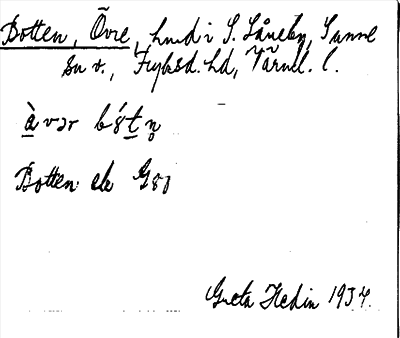 Botten, Övre, hmd i S. Låneby, Sunne
sn v., Fryksd. hd, Värml. l.
à vər bót n̥
Botten ek G80
Greta Hedin 1934.